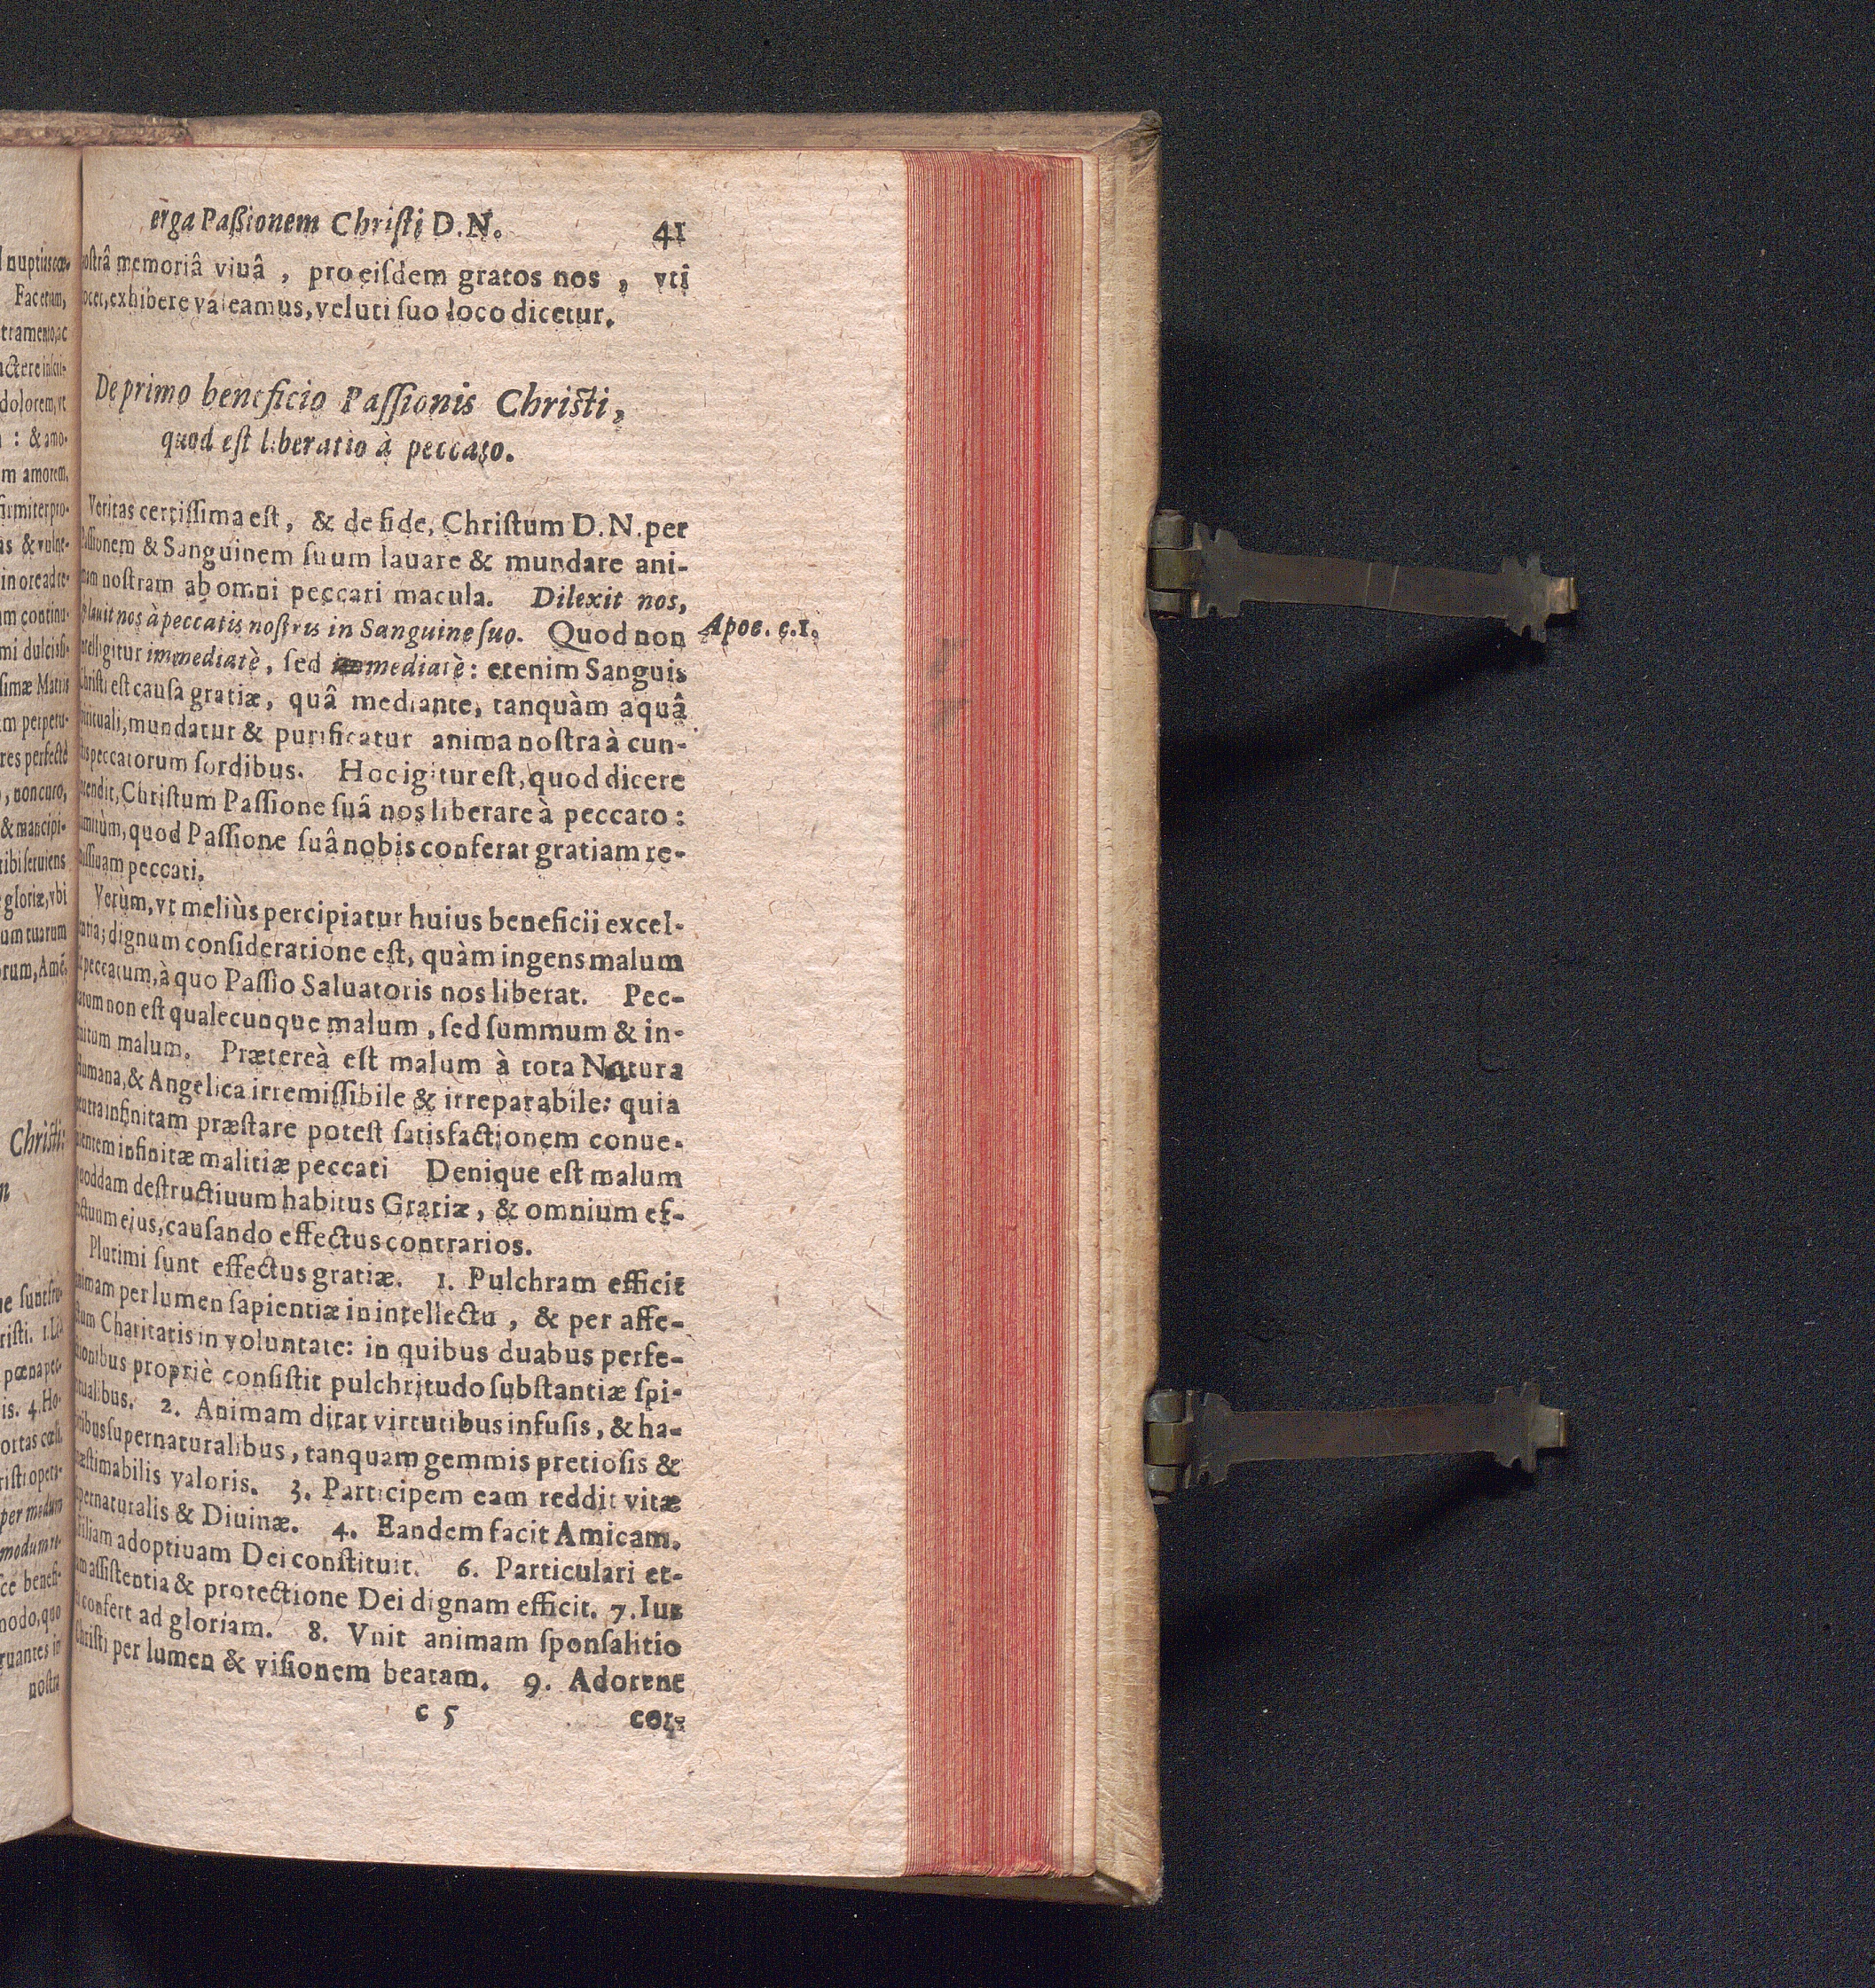 erga Paßionem Christi D.N. 41
nostrâ memoriâ viuâ, pro eiſdem gratos nos, vti
docet, exhibere valeamus, veluti ſuo loco dicetur.
De primo beneficio Paſſionis Chriſti,
quod eſt liberatio à peccato.
Veritas certiſſima eſt, & de fide, Chriſtum D.N. per
Paſſionem & Sanguinem ſuum lauare & mundare ani-
mam noſtram ab omni peccati macula. Dilexit nos,
& lauit nos à peccatis noſtris in Sanguine ſuo. Quod non
Apoc. c.1.
intelligitur immediatè, ſed mediatè: etenim Sanguis
Chriſti eſt cauſa gratiæ, quâ mediante, tanquàm aquâ
ſpirituali, mundatur & purificatur anima noſtra à cun-
ctis peccatorum ſordibus. Hoc igitur eſt, quod dicere
intendit, Chriſtum Paſſione ſuâ nos liberare à peccato:
nimiùm, quod Paſſione ſuâ nobis conferat gratiam re-
miſſiuam peccati.
Verùm, vt meliùs percipiatur huius beneficii excel-
lentia; dignum conſideratione eſt, quàm ingens malum
peccatum, à quo Paſſio Saluatoris nos liberat. Pec-
catum non eſt qualecunque malum, ſed ſummum & in-
finitum malum. Prætereà eſt malum à tota Natura
Humana, & Angelica irremiſſibile & irreparabile: quia
neutra infinitam præſtare poteſt ſatisfactionem conue-
nientem infinitæ malitiæ peccati Denique eſt malum
quoddam deſtructiuum habitus Gratiæ, & omnium ef-
fectuum ejus, cauſando effectus contrarios.
Plurimi ſunt effectus gratiæ. 1. Pulchram efficit
animam per lumen ſapientiæ in intellectu, & per affe-
ctum Charitatis in voluntate: in quibus duabus perfe-
ctionibus propriè conſiſtit pulchritudo ſubſtantiæ ſpi-
ritualibus. 2. Animam ditat virtutibus infuſis, & ha-
bitibus ſupernaturalibus, tanquam gemmis pretioſis &
inæſtimabilis valoris. 3. Participem eam reddit vitæ
ſupernaturalis & Diuinæ. 4. Eandem facit Amicam.
Filiam adoptiuam Dei conſtituit. 6. Particulari et-
iam aſſiſtentia & protectione Dei dignam efficit. 7. Ius
confert ad gloriam. 8. Vnit animam ſponſalitio
Chriſti per lumen & viſionem beatam. 9. Adorent
c 5 cor-